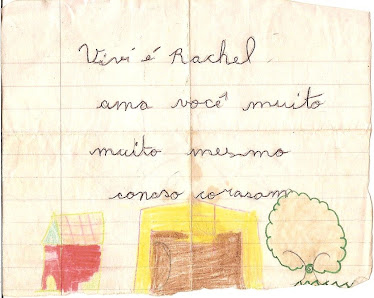 Vivi é Rachel
ama você muito
muito mesmo
conoso corasam